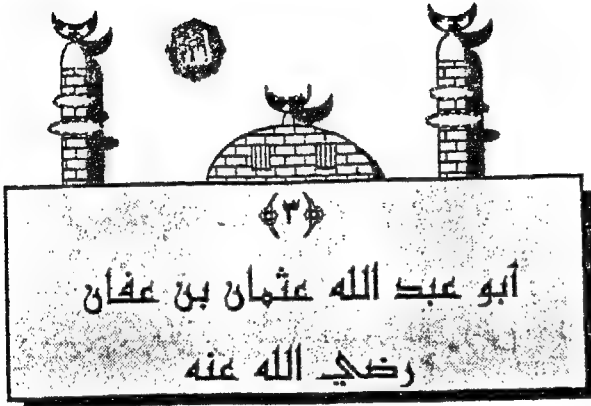 ﴿٣﴾
أبو عبد الله عثمان بن عفان
رضي الله عنه